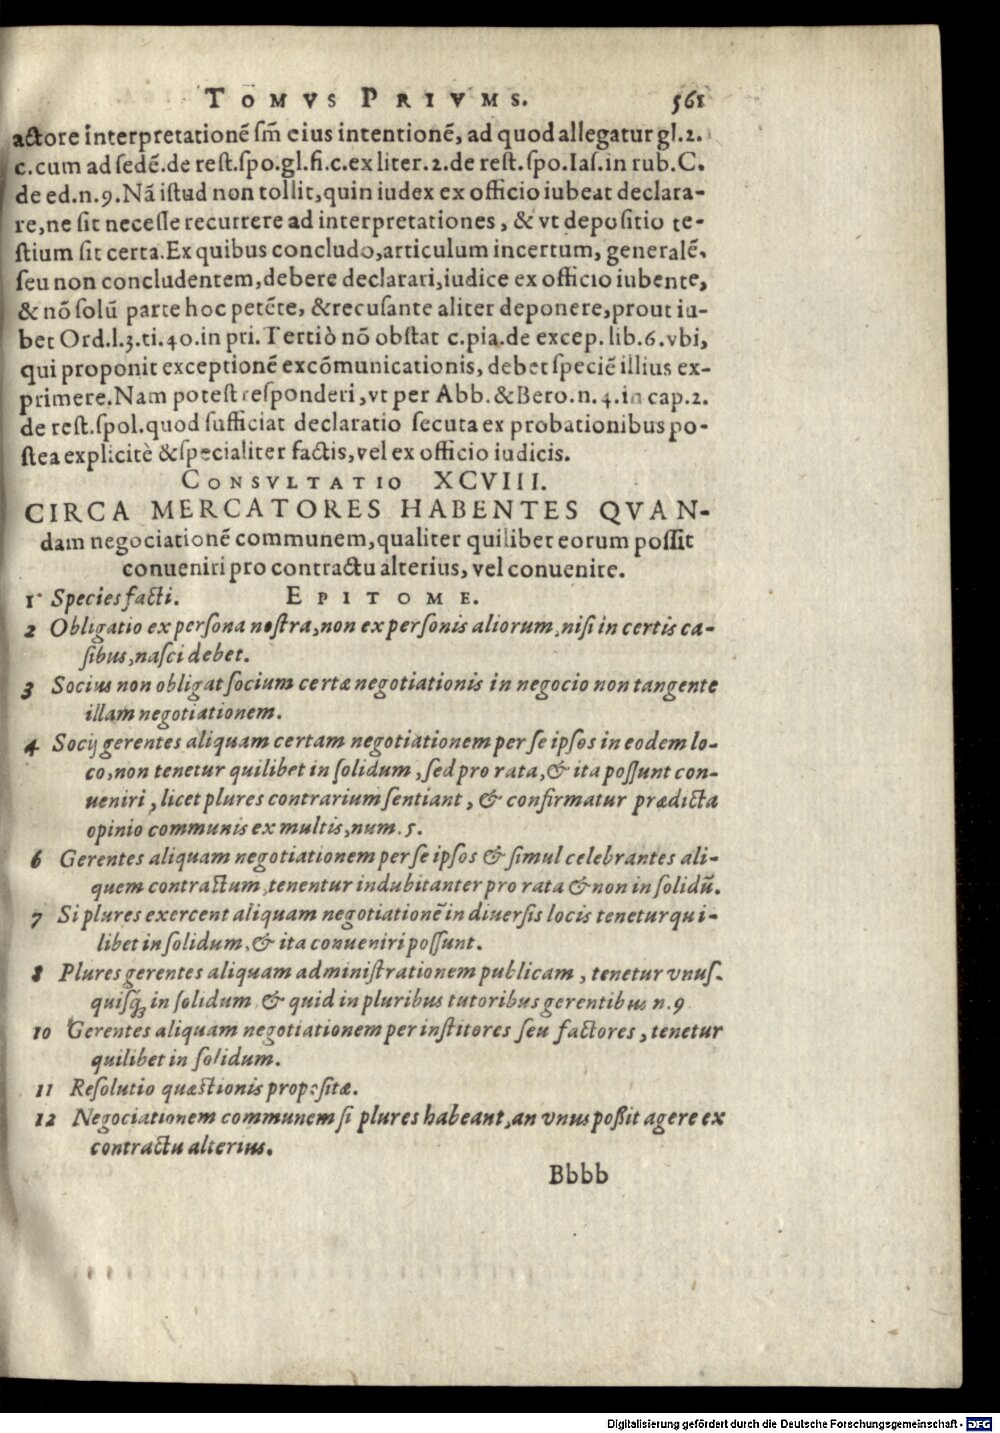 TOMVS PRIVMS. 561
actore interpretationẽ sm̃ eius intentionẽ, ad quod allegatur gl.2.
c.cum ad sedẽ.de rest.spo.gl.fi.c.ex liter.2.de rest.spo.Ias.in rub.C.
de ed.n.9.Nã istud non tollit,quin iudex ex officio iubeat declara-
re,ne sit necesse recurrere ad interpretationes, & vt depositio te-
stium sit certa.Ex quibus concludo,articulum incertum, generalẽ,
seu non concludentem,debere declarari,iudice ex officio iubente,
& nõ solũ parte hoc petẽte, &recusante aliter deponere,prout iu-
bet Ord.l.3.ti.40.in pri.Tertiò nõ obstat c.pia.de excep.lib.6.vbi,
qui proponit exceptionẽ excõmunicationis, debet speciẽ illius ex-
primere.Nam potest responderi,vt per Abb.&Bero.n.4.in cap.2.
de rest.spol.quod sufficiat declaratio secuta ex probationibus po-
stea explicitè &specialiter factis,vel ex officio iudicis.
CONSVLTATIO XCVIII.
CIRCA MERCATORES HABENTES QVAN-
dam negociationẽ communem,qualiter quilibet eorum possit
conueniri pro contractu alterius, vel conuenire.
1 Species facti. EPITOME.
2 Obligatio ex persona nostra,non ex personis aliorum,nisi in certis ca-
sibus,nasci debet.
3 Socius non obligat socium certæ negotiationis in negocio non tangente
illam negotiationem.
4 Socij gerentes aliquam certam negotiationem per se ipsos in eodem lo-
co,non tenetur quilibet in solidum, sed pro rata,& ita possunt con-
ueniri, licet plures contrarium sentiant, & confirmatur prædicta
opinio communis ex multis,num.5.
6 Gerentes aliquam negotiationem per se ipsos & simul celebrantes ali-
quem contractum,tenentur indubitanter pro rata & non in solidũ.
7 Si plures exercent aliquam negotiationẽ in diuersis locis tenetur qui-
libet in solidum, & ita conueniri possunt.
8 Plures gerentes aliquam administrationem publicam, tenetur vnus-
quisq́; in solidum & quid in pluribus tutoribus gerentibus n.9
10 Gerentes aliquam negotiationem per institores seu factores, tenetur
quilibet in solidum.
11 Resolutio quæstionis propositæ.
12 Negociationem communem si plures habeant,an vnus possit agere ex
contractu alterius.
Bbbb
Digitalisierung gefördert durch die Deutsche Forschungsgemeinschaft - DFG